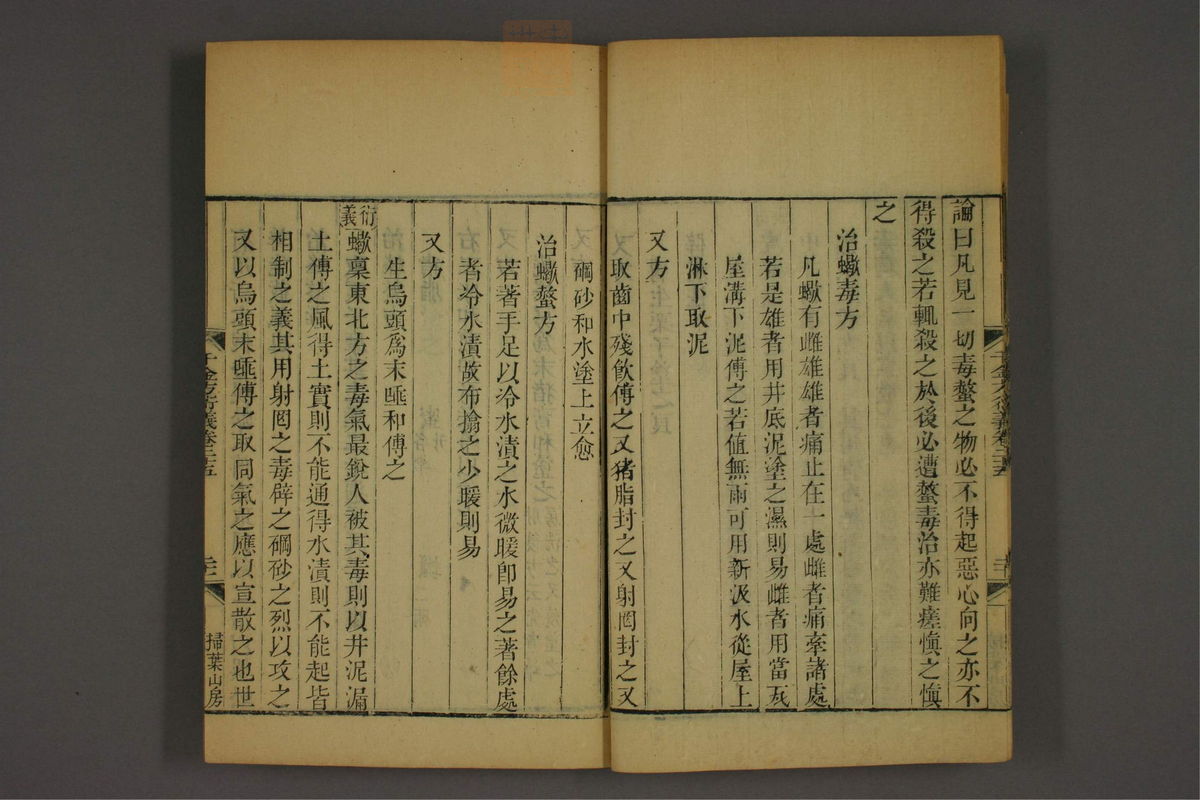 論曰凡見一切毒螫之物必不得起惡心向之亦不
得殺之若輒殺之於後必遭螫毒治亦難瘥愼之愼
之
治蠍毒方
凡蠍有雌雄雄者痛止在一處雌者痛牽諸處
若是雄者用井底泥塗之濕則易雌者用當瓦
屋溝下泥傅之若值無雨可用新汲水從屋上
淋下取泥
又方
取齒中殘飲傅之又猪脂封之又射罔封之又
硇砂和水塗上立愈
治蠍螫方
若著手足以冷水漬之水微暖卽易之著餘處
者冷水漬故布搨之少暖則易
又方
生烏頭爲末唾和傅之
衍義
蠍稟東北方之毒氣最銳人被其毒則以井泥漏
土傅之風得土實則不能通得水漬則不能起皆
相制之義其用射罔之毒辟之硇砂之烈以攻之
又以烏頭末唾傅之取同氣之應以宣散之也世
千金方衍義卷二十五
掃葉山房